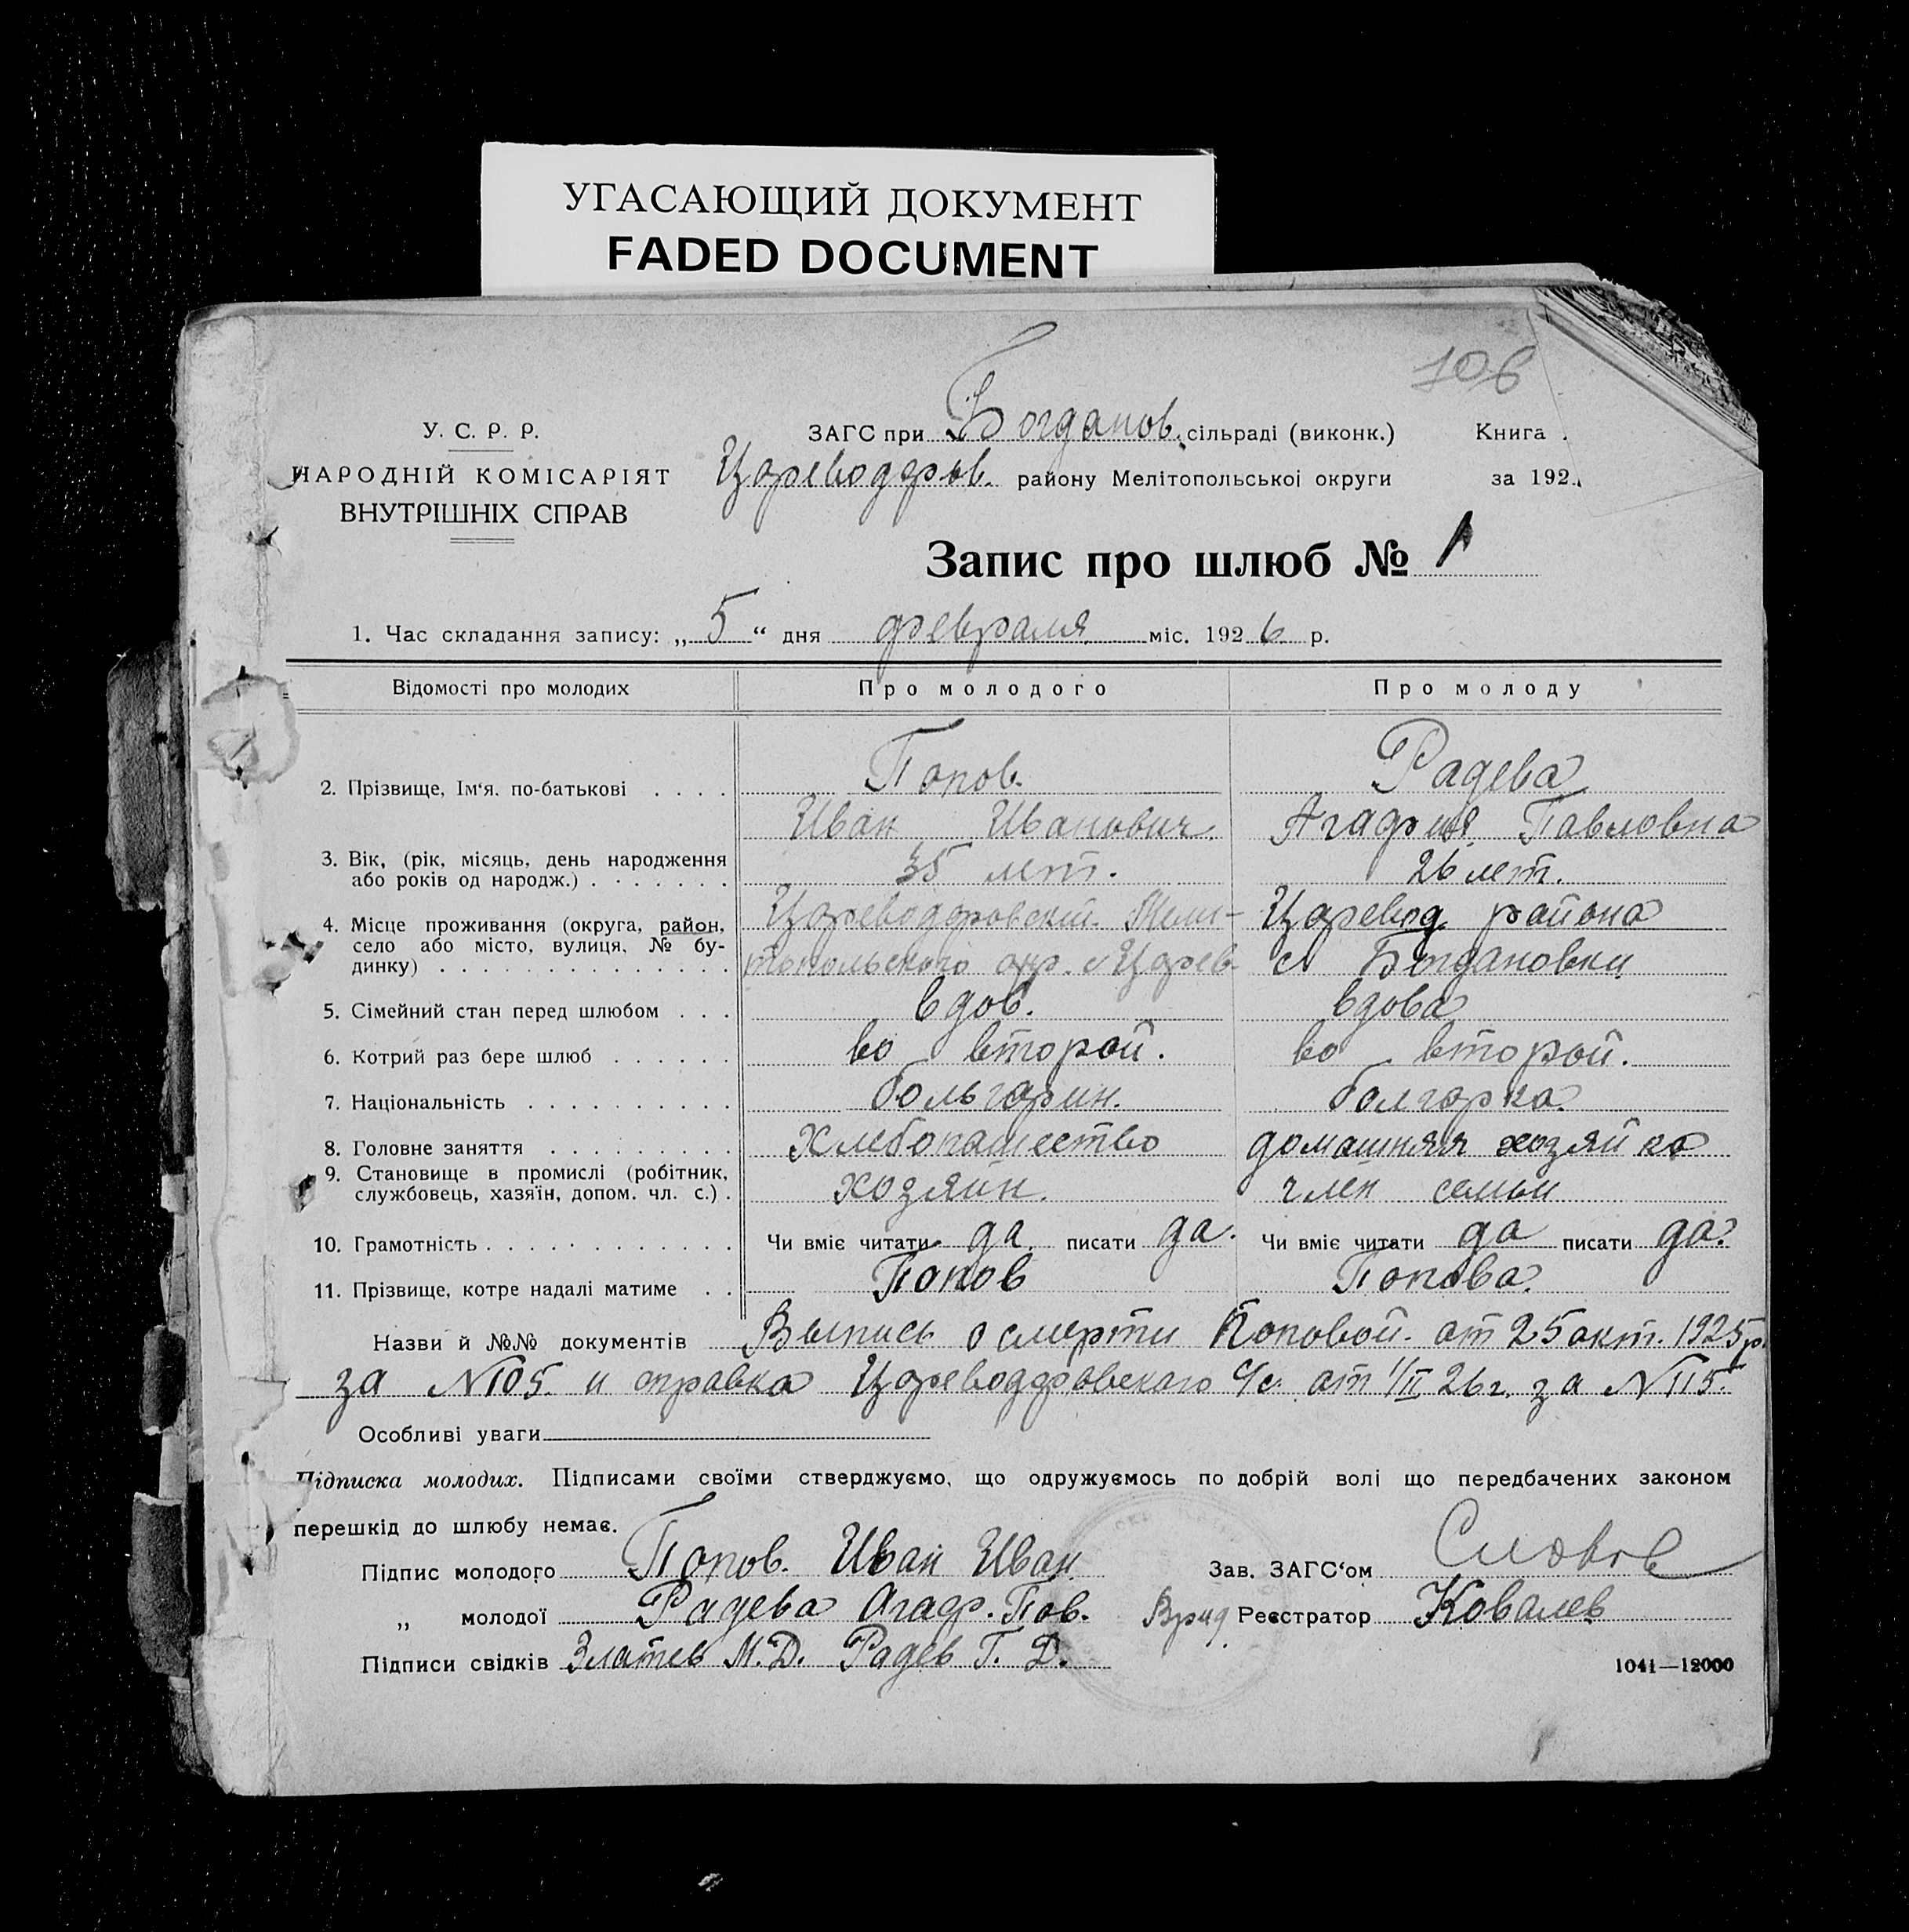 УГАСАЮЩИЙ ДОКУМЕНТ
FADED DOCUMENT
106
У. С. Р. Р.
НАРОДНІЙ КОМІСАРІЯТ
ВНУТРІШНІХ СПРАВ
ЗАГС при Богданов. сільраді (виконк.)
Книга
Цареводаров. району Мелітопольскоі округи
за 192
Запис про шлюб № 1
1. Час складання запису: „ 5 “ дня февраля міс. 1926 р.
Відомості про молодих Про молодого Про молоду
2. Прізвище, Ім‘я. по-батькові Попов. Радева
Иван Иванович. Агафия Павловна
3. Вік, (рік, місяць, день народження
або років од народж.) 35 лет. 26 лет.
4. Місце проживання (округа, район, Мели- Царевод района
село або місто, вулиця, № бу-
динку) топольского окр. с Царев- с Богдановки
5. Сімейний стан перед шлюбом вдов. вдова
6. Котрий раз бере шлюб во второй. во второй.
7. Національність больгарин. болгарка.
8. Головне заняття хлебопашество домашняя хозяйка
9. Становище в промислі (робітник,
службовець, хазяїн, допом. чл. с.) хозяйн. член семьи
10. Грамотність Чи вміє читати да писати да. Чи вміє читати да писати да.
11. Прізвище, котре надалі матиме Попов Попова.
Назви й №№ документів Выпись о смерти Поповой. от 25 окт. 1925 р.
за N105. и справка с/с. от 1/II 26 г. за N115.
Особливі уваги
Підписка молодих. Підписами своїми стверджуємо, що одружуємось по добрій волі що передбачених законом
перешкід до шлюбу немає.
Підпис молодого Попов. Иван Иван
Зав. ЗАГС‘ом
„ молодої Радева Агаф. Пав.
Врид Реєстратор Ковалев
Підписи свідків Златев М. Д. Радев Г. Д.
1041—12000